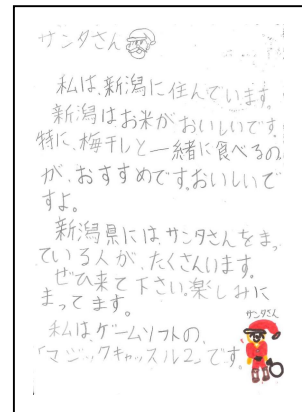 サンタさん
私は、新潟に住んでいます。
新潟はお米がおいしいです。
特に、梅干しと一緒に食べるの
が、おすすめです。おいしいで
すよ。
新潟県には、サンタさんをまっ
ている人が、たくさんいます。
ぜひ来て下さい。楽しみに
まってます。
サンタさん
私は、ゲームソフトの、
「マジックキャッスル2」です。